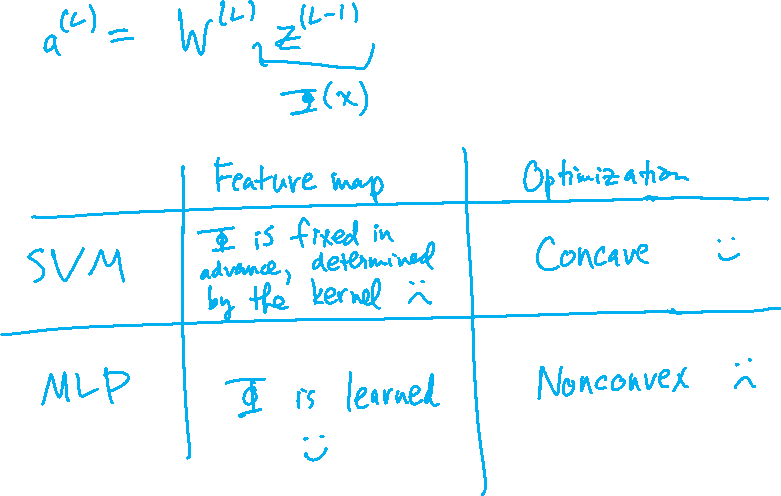 a^(L) = W^(L) z^(L-1)
Φ(x)
Feature map Optimization
SVM Φ is fixed in advance, determined by the kernel :( Concave :)
MLP Φ is learned :) Nonconvex :(